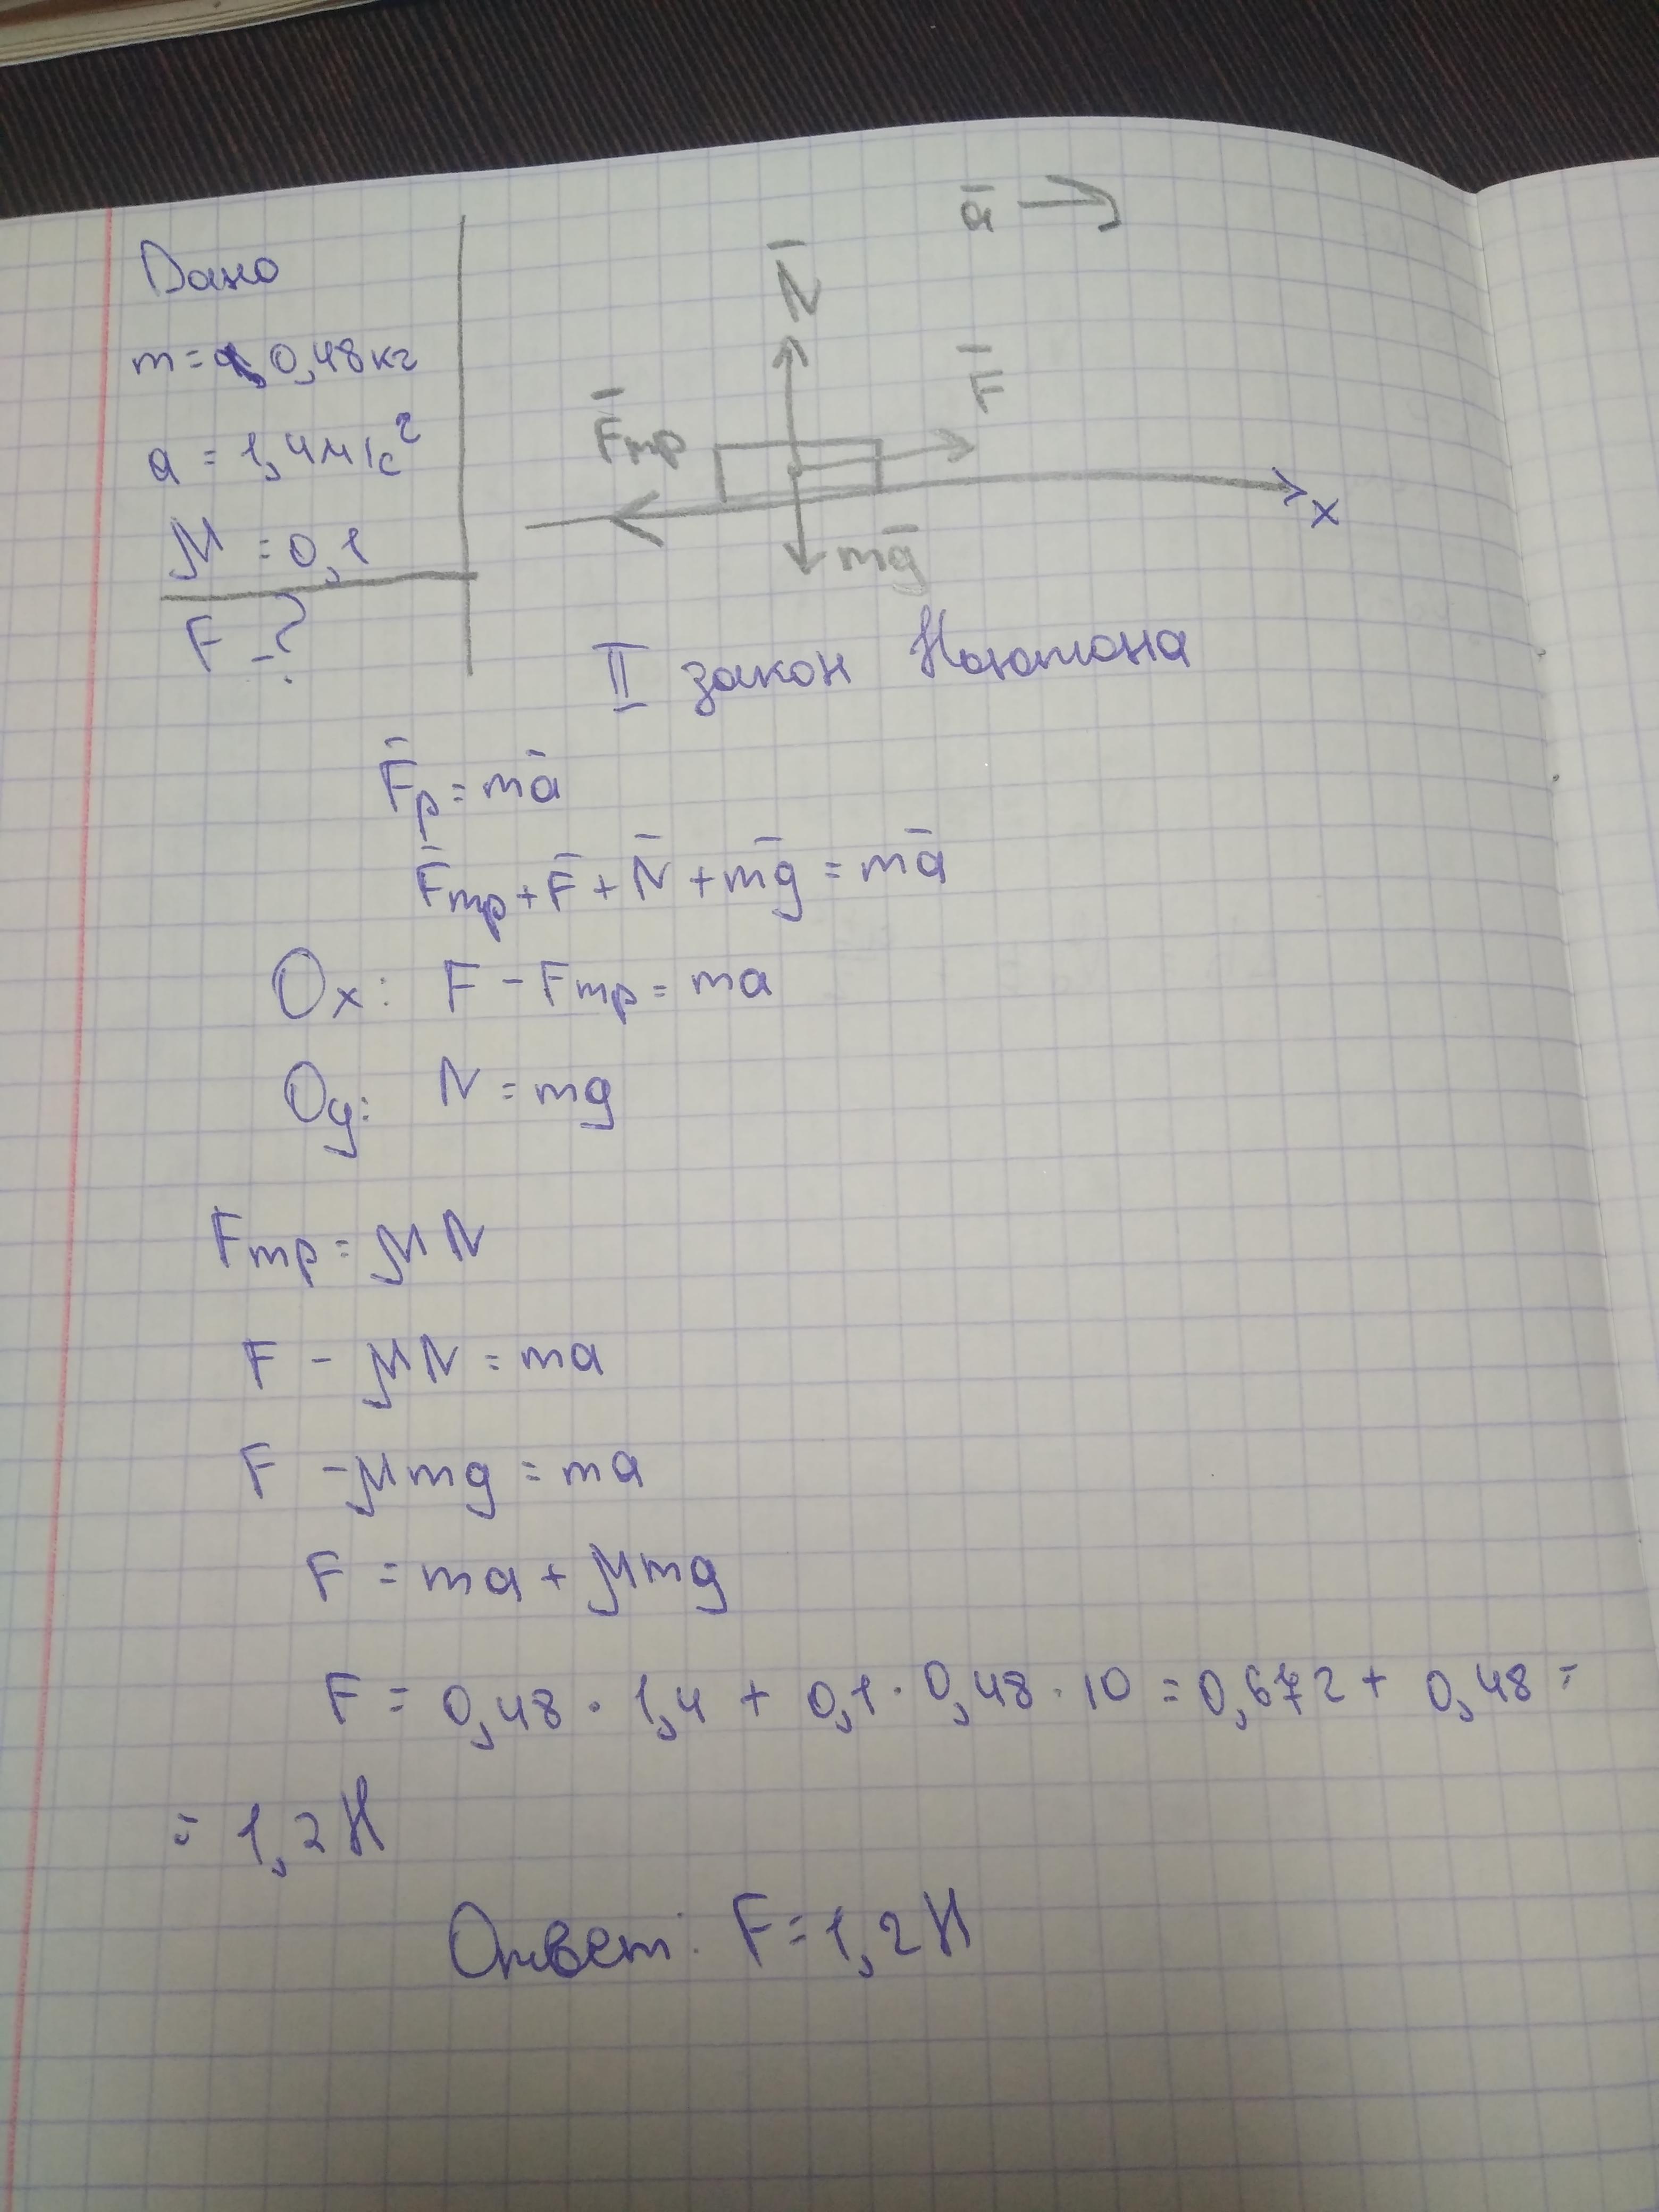 Дано
m = 0,48 кг
a = 1,4 м/с²
μ = 0,1
F - ?
a̅
N̅
F̅тр
F̅
x
mg̅
II закон Ньютона
F̅р = ma̅
F̅тр + F̅ + N̅ + mg̅ = ma̅
Ox: F - Fтр = ma
Oy: N = mg
Fтр = μN
F - μN = ma
F - μmg = ma
F = ma + μmg
F = 0,48 · 1,4 + 0,1 · 0,48 · 10 = 0,672 + 0,48 =
= 1,2 Н
Ответ: F = 1,2 Н